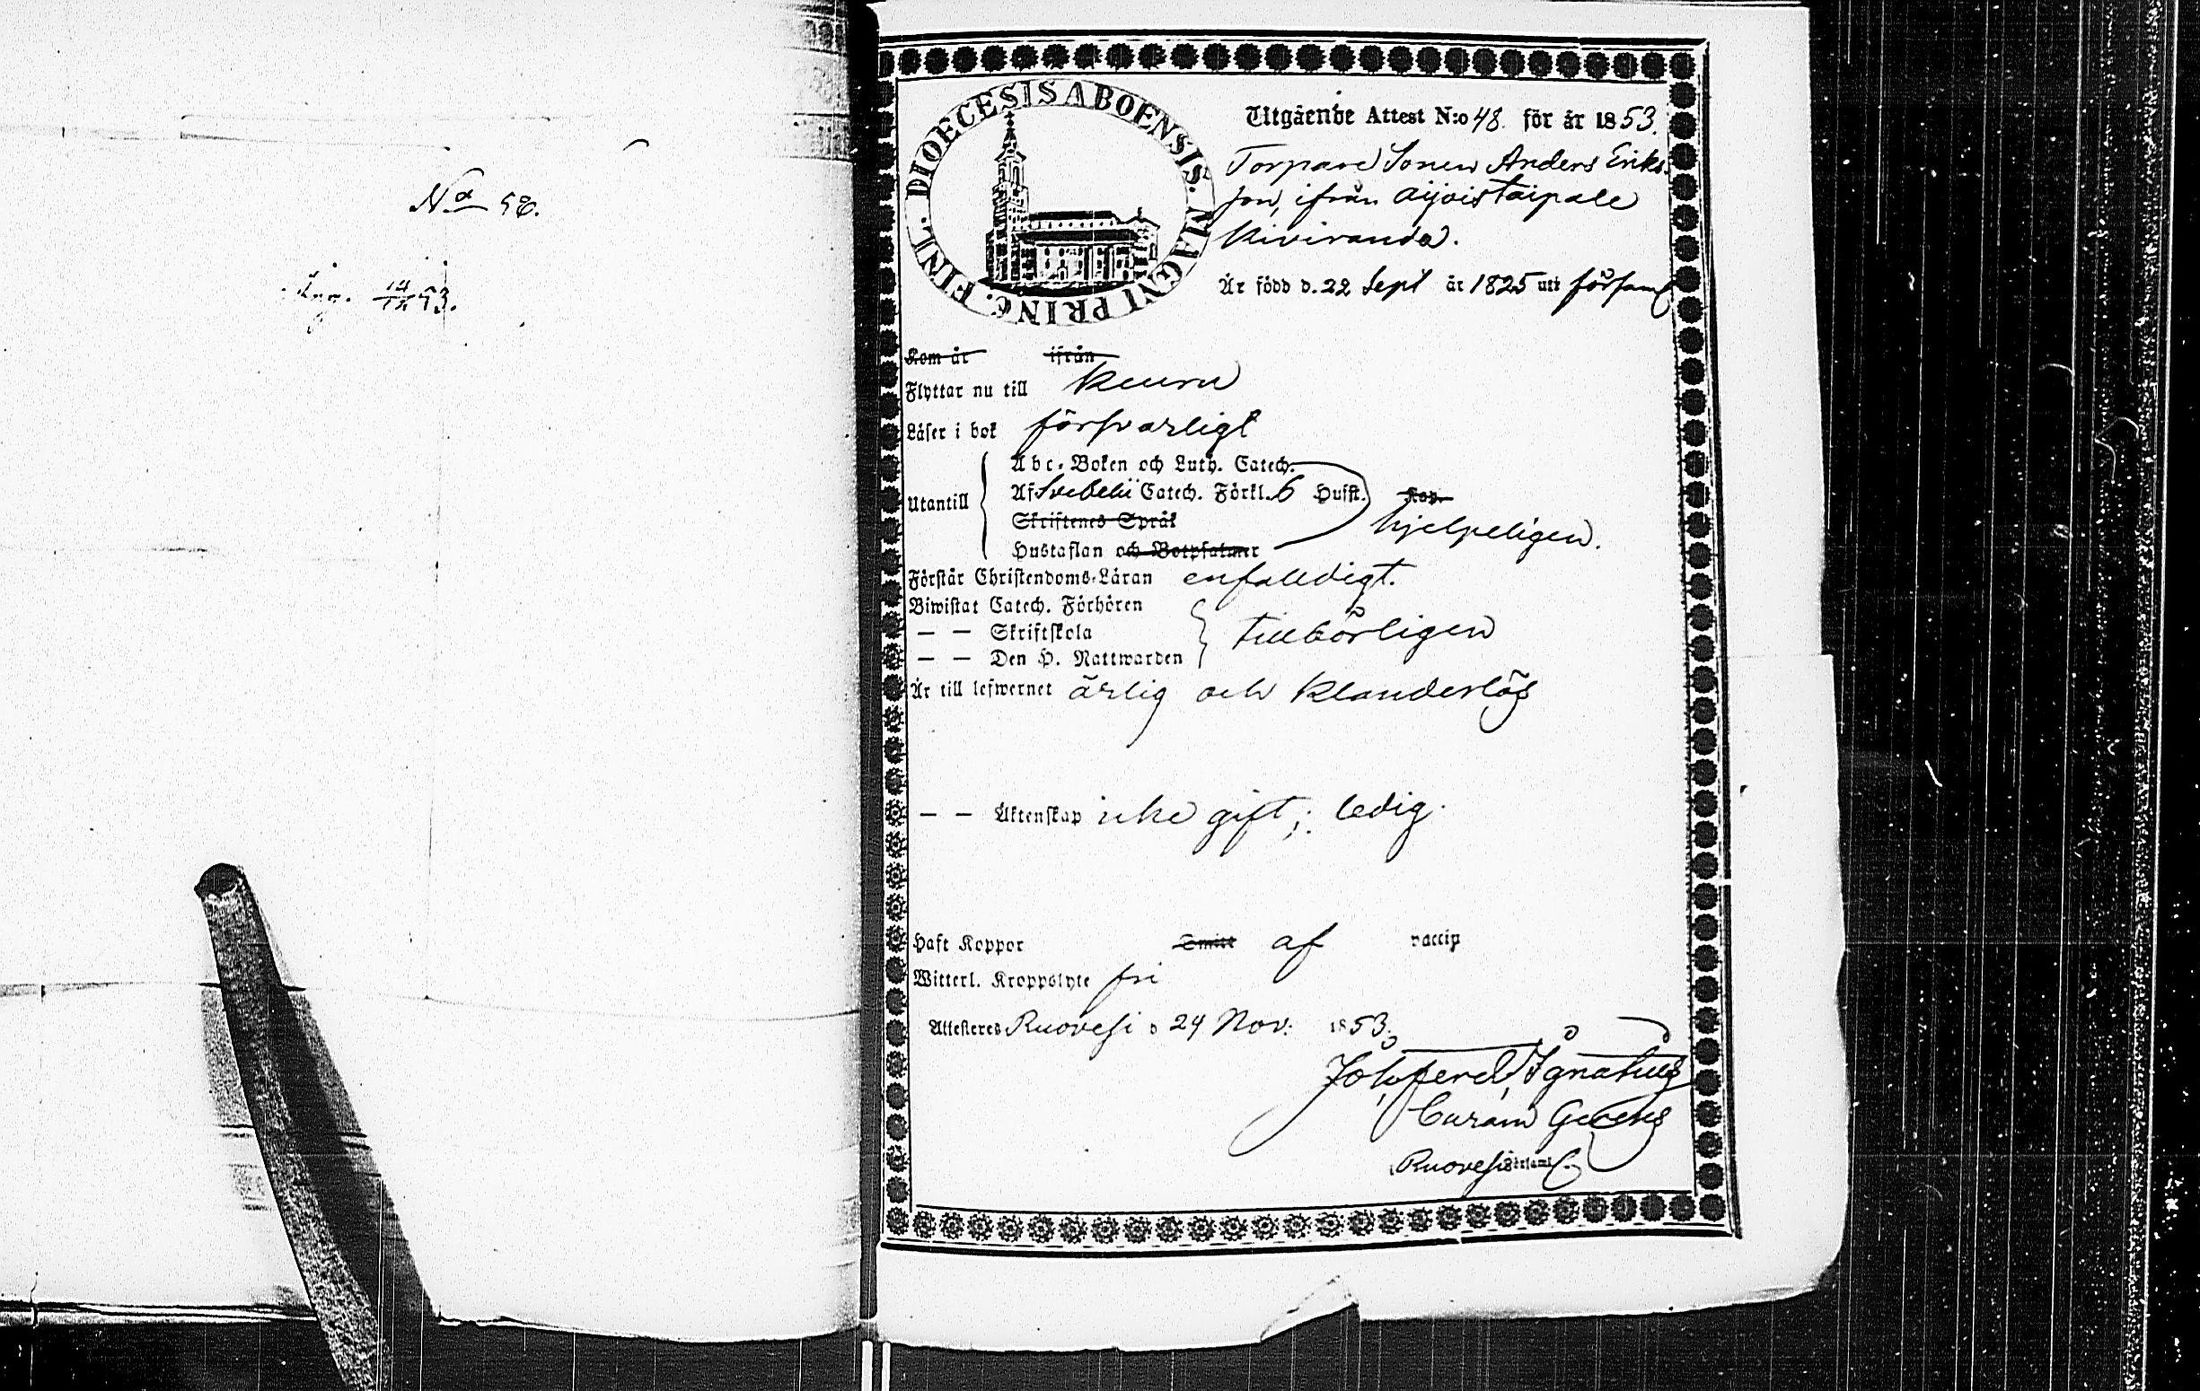 No 58.
Ing. 14/12 53.
DIOECESIS ABOENSIS. MAGNI PRINC. FINL.
Utgående Attest N:o 48. för år 1853.
Torpare Sonen Anders Eriks
son, ifrån Äijöistaipale
Kiviranda.
Är född d. 22 Sept år 1825 uti församl
Kom år ifrån
Flyttar nu till Keuru
Läser i bok försvarligt
Abc-Boken och Luth. Catech.
Utantill Af Svebelii Catech. Förkl. 6 Hufst. Kap.
Skriftenes Språk
hjelpeligen.
Hustaflan och Botpsalmer
Förstår Christendoms-Läran enfalldigt.
Biwistat Catech. Förhören
— — Skriftskola tillbörligen
— — Den H. Nattwarden
Är till lefwernet ärlig och klanderlös
— — Äktenskap icke gift; ledig.
Haft Koppor Smitt af vaccin
Witterl. Kroppslyte fri
Attesteres Ruovesi d 24 Nov: 1853.
Joh. Ferd. Ignatius
Curam Gerens
Ruovesi Församl.